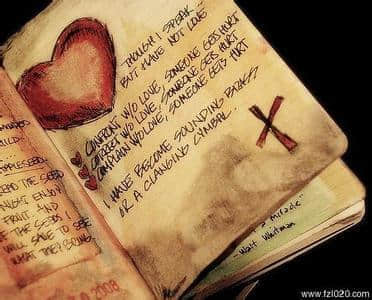 THOUGH I SPEAK
BUT HAVE NOT LOVE
CONFRONT W/O LOVE, SOMEONE GETS HURT
CORRECT W/O LOVE, SOMEONE GETS HURT
COMPLAIN W/O LOVE, SOMEONE GETS HURT
I HAVE BECOME SOUNDING BRASS
OR A CLANGING CYMBAL.
X
CHILD.
APPLESEED
READ THE SEED
MIGHT ENJOY
FRUIT AND
THE SEEDS I
WILL SAVE TO SEE
WHAT THEY BRING
2008
a miracle"
-Walt Whitman
www.fzl020.com